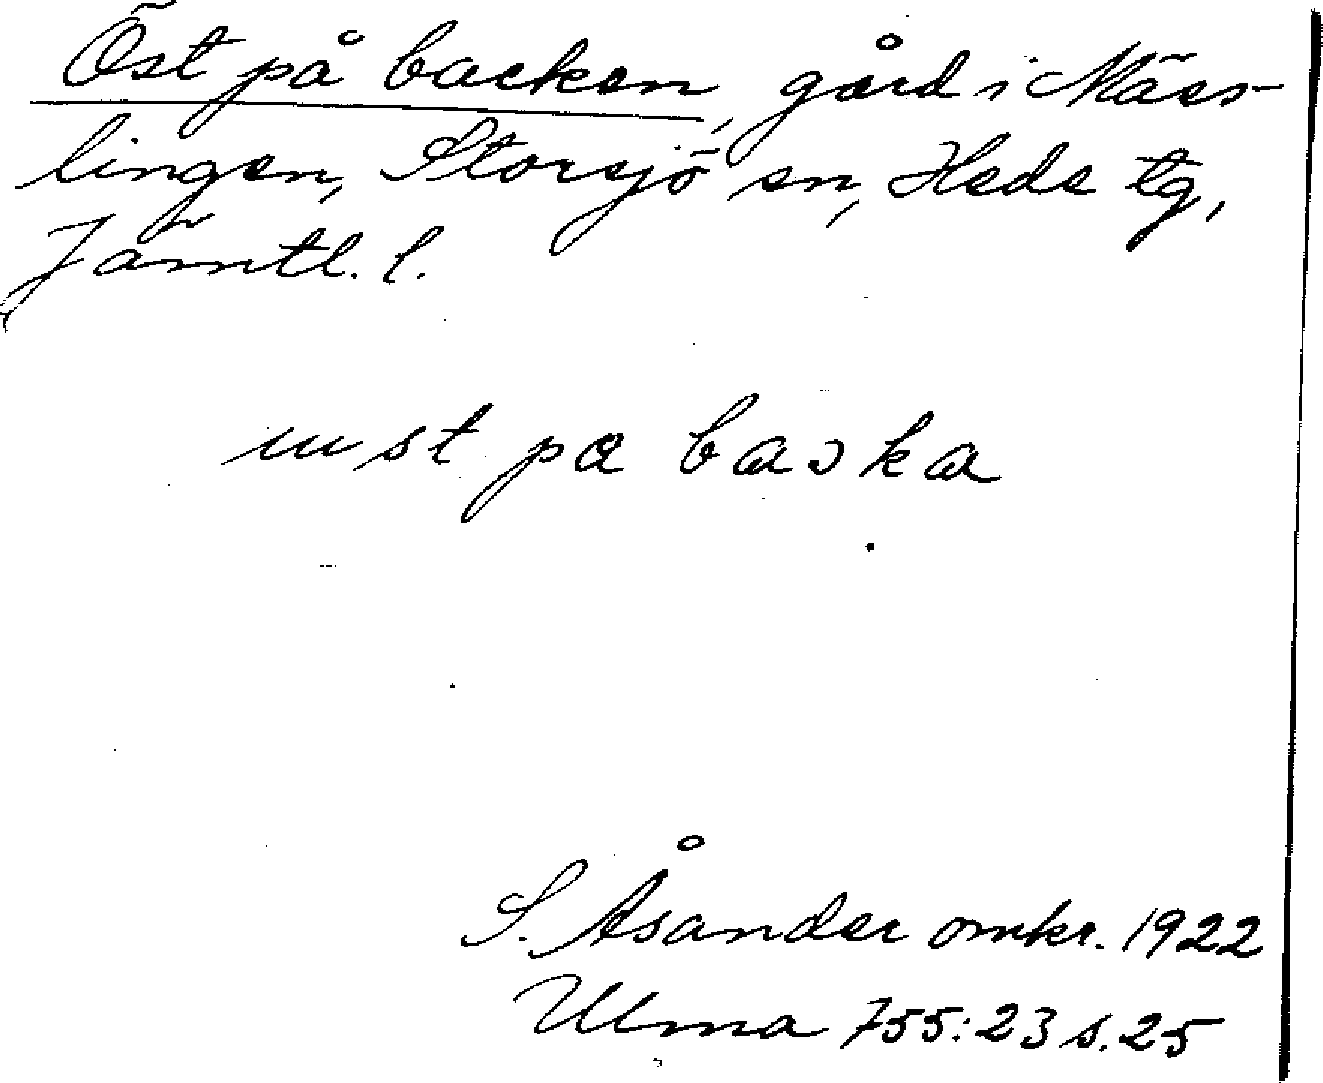 Öst på backen, gård i Mäss-
lingen, Storsjö sn, Hede tg,
Jämtl. l.
S. Åsander omkr. 1922
Ulma 755:23 s. 25